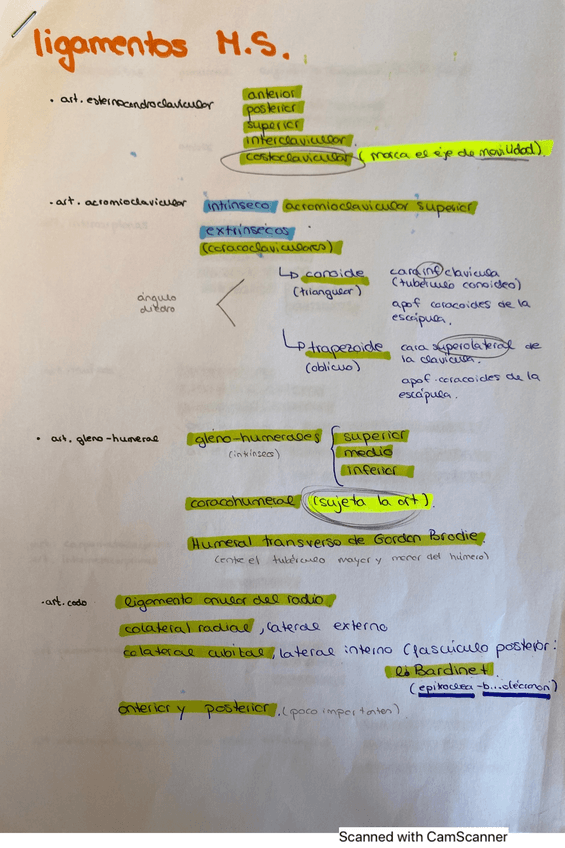 ligamentos M.S.
· art. esternocondroclavicular
anterior
posterior
superior
interclavicular
costoclavicular (marca el eje de movilidad).
· art. acromioclavicular intrínseco acromioclavicular superior
extrínsecos
(coracoclaviculares)
↳ conoide cara inf clavícula
(triangular) (tubérculo conoideo)
apof coracoides de la
escápula.
ángulo
diedro
↳ trapezoide cara superolateral de
(oblicuo) la clavícula.
apof. coracoides de la
escápula.
· art. gleno-humeral gleno-humerales superior
(intrínsecs) medio
inferior
coracohumeral (sujeta la art).
Humeral transverso de Gordon Brodie.
(entre el tubérculo mayor y menor del húmero)
· art. codo ligamento anular del radio.
colateral radial, lateral externo
colateral cubital, lateral interno (fascículo posterior:
Bardinet
(epitroclea - olécranon)
anterior y posterior. (poco importantes).
Scanned with CamScanner